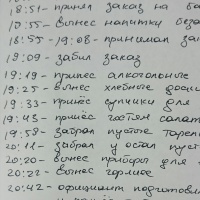 18:51 - принял заказ на ба
18:55 - вынес напитки беза
18:55 - 19:08 - принимал за
19:09 - забил заказ
19:19 - принес алкогольные
19:25 - вынес хлебные
19:33 - принёс супчики для
19:43 - принёс гостям салат
19:58 - забрал пустые таре
20:11 - забрал у остал пуст
20:20 - вынес приборы для
20:22 - вынес горячее
20:42 - официант подготови